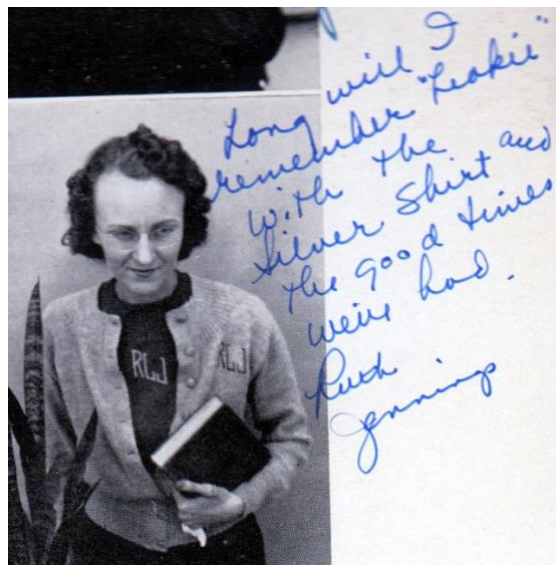 Long will I
remember "Leakie"
with the
Silver Shirt and
the good times
we've had.
Ruth
Jennings
RLJ
RLJ